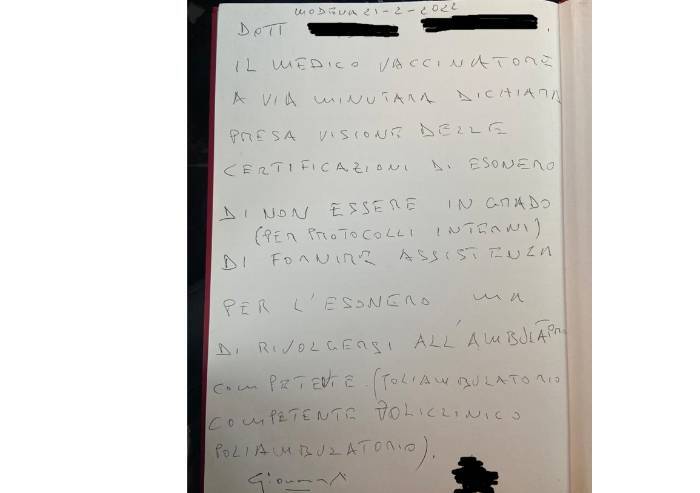 MODENA 21-2-2022
DOTT .
IL MEDICO VACCINATORE
A VIA MINUTARA DICHIARA
PRESA VISIONE DELLE
CERTIFICAZIONI DI ESONERO
DI NON ESSERE IN GRADO
(PER PROTOCOLLI INTERNI)
DI FORNIRE ASSISTENZA
PER L'ESONERO MA
DI RIVOLGERSI ALL'
COMPETENTE (POLIAMBULATORIO
COMPETENTE POLICLINICO
POLIAMBULATORIO).